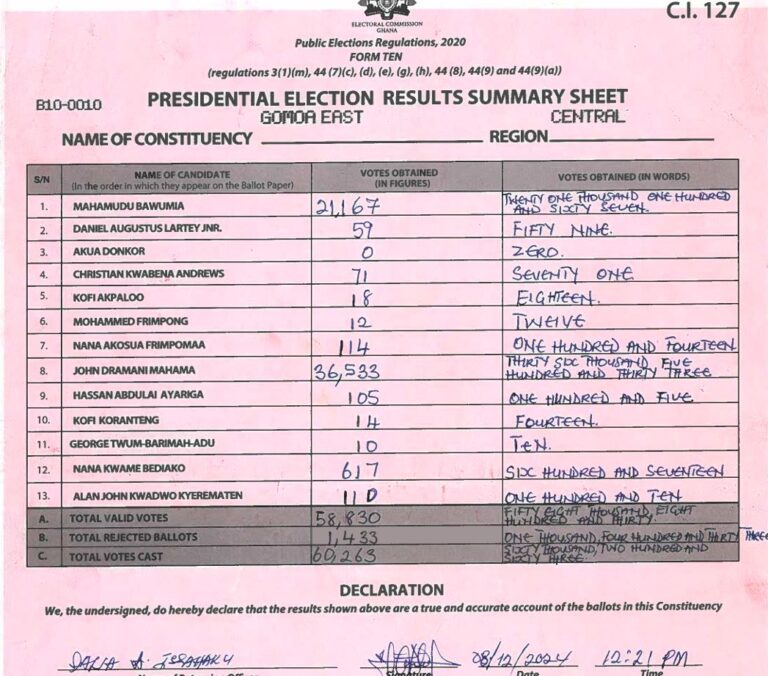 C.I. 127
ELECTORAL COMMISSION
GHANA
Public Elections Regulations, 2020
FORM TEN
(regulations 3(1)(m), 44 (7)(c), (d), (e), (g), (h), 44 (8), 44(9) and 44(9)(a))
B10-0010
PRESIDENTIAL ELECTION RESULTS SUMMARY SHEET
NAME OF CONSTITUENCY GOMOA EAST REGION CENTRAL
S/N NAME OF CANDIDATE (In the order in which they appear on the Ballot Paper) VOTES OBTAINED (IN FIGURES) VOTES OBTAINED (IN WORDS)
1. MAHAMUDU BAWUMIA 21,167 TWENTY ONE THOUSAND ONE HUNDRED AND SIXTY SEVEN.
2. DANIEL AUGUSTUS LARTEY JNR. 59 FIFTY NINE.
3. AKUA DONKOR 0 ZERO.
4. CHRISTIAN KWABENA ANDREWS 71 SEVENTY ONE
5. KOFI AKPALOO 18 EIGHTEEN.
6. MOHAMMED FRIMPONG 12 TWELVE
7. NANA AKOSUA FRIMPOMAA 114 ONE HUNDRED AND FOURTEEN
8. JOHN DRAMANI MAHAMA 36,533 THIRTY SIX THOUSAND, FIVE HUNDRED AND THIRTY THREE
9. HASSAN ABDULAI AYARIGA 105 ONE HUNDRED AND FIVE
10. KOFI KORANTENG 14 FOURTEEN.
11. GEORGE TWUM-BARIMAH-ADU 10 TEN.
12. NANA KWAME BEDIAKO 617 SIX HUNDRED AND SEVENTEEN
13. ALAN JOHN KWADWO KYEREMATEN 110 ONE HUNDRED AND TEN
A. TOTAL VALID VOTES 58,830 FIFTY EIGHT THOUSAND, EIGHT HUNDRED AND THIRTY.
B. TOTAL REJECTED BALLOTS 1,433 ONE THOUSAND, FOUR HUNDRED AND THIRTY THREE
C. TOTAL VOTES CAST 60,263 SIXTY THOUSAND, TWO HUNDRED AND SIXTY THREE.
DECLARATION
We, the undersigned, do hereby declare that the results shown above are a true and accurate account of the ballots in this Constituency
08/12/2024 12:21 PM
Signature Date Time